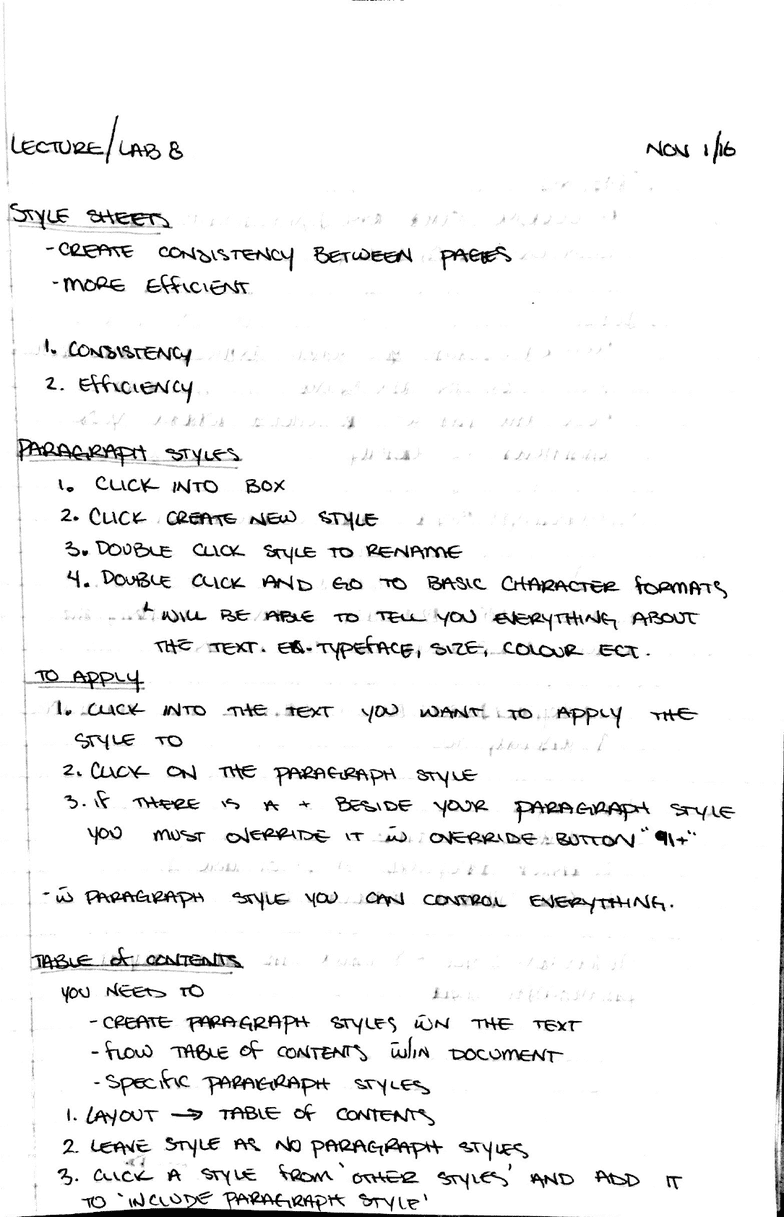 LECTURE/LAB 8
NOV 1/16
STYLE SHEETS
-CREATE CONSISTENCY BETWEEN PAGES
-MORE EFFICIENT
1. CONSISTENCY
2. EFFICIENCY
PARAGRAPH STYLES
1. CLICK INTO BOX
2. CLICK CREATE NEW STYLE
3. DOUBLE CLICK STYLE TO RENAME
4. DOUBLE CLICK AND GO TO BASIC CHARACTER FORMATS
WILL BE ABLE TO TELL YOU EVERYTHING ABOUT
THE TEXT. EX. TYPEFACE, SIZE, COLOUR ECT.
TO APPLY
1. CLICK INTO THE TEXT YOU WANT TO APPLY THE
STYLE TO
2. CLICK ON THE PARAGRAPH STYLE
3. IF THERE IS A + BESIDE YOUR PARAGRAPH STYLE
YOU MUST OVERRIDE IT w̄ OVERRIDE BUTTON "¶+"
- w̄ PARAGRAPH STYLE YOU CAN CONTROL EVERYTHING.
TABLE OF CONTENTS
YOU NEED TO
-CREATE PARAGRAPH STYLES w̄N THE TEXT
-FLOW TABLE OF CONTENTS w̄/IN DOCUMENT
-SPECIFIC PARAGRAPH STYLES
1. LAYOUT → TABLE OF CONTENTS
2. LEAVE STYLE AS NO PARAGRAPH STYLES
3. CLICK A STYLE FROM 'OTHER STYLES' AND ADD IT
TO 'INCLUDE PARAGRAPH STYLE'